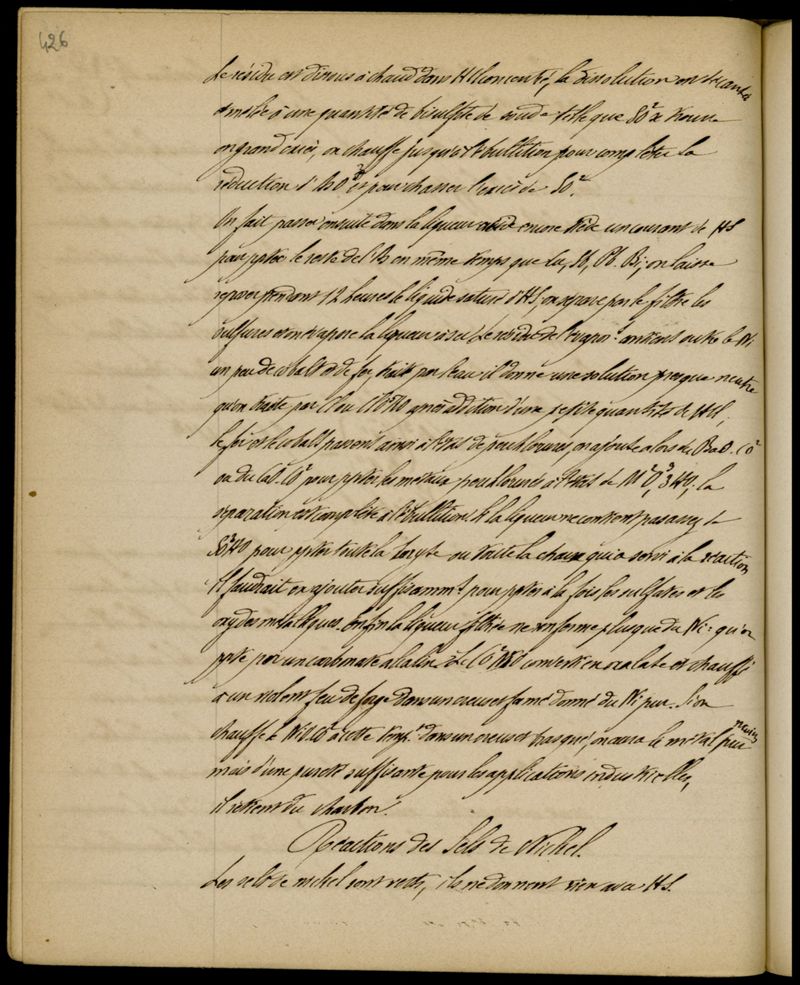 426
Le résidu est dissous à chaud dans HCl concentré, la dissolution est décantée
et mêlée à une quantité de bisulfite de soude telle que SO² se trouve
en grand excès, on chauffe jusqu'à l'ébullition pour compléter la
réduction d'AsO⁵ et pour chasser l'excès de SO².
On fait passer ensuite dans la liqueur acide encore tiède un courant de HS
pour ppter le reste de l'As en même temps que Cu, Sb, Pb, Bi; on laisse
reposer pendant 12 heures le liquide saturé d'HS, on sépare par le filtre les
sulfures et on évapore la liqueur à sec. Le résidu de l'évapor.ⁿ contient outre le Ni
un peu de cobalt et de fer, traité par l'eau il donne une solution presque neutre
qu'on traite par Cl ou ClO HO après addition d'une petite quantité de HCl,
le fer et le cobalt passent ainsi à l'état de perchlorures, on ajoute alors de BaO.CO²
ou du CaO.CO² pour ppter les métaux perchlorurés à l'état de M²O³,3HO, la
séparation est complète à l'ébullition. Si la liqueur ne contient pas assez de
SO³HO pour ppter toute la baryte ou toute la chaux qui a servi à la réaction
il faudrait en ajouter suffisamm.ᵗ pour ppter à la fois les sulfates et les
oxydes métalliques. Enfin la liqueur filtrée ne renferme plus que du Ni: qu'on
ppte par un carbonate alcalin. Le CO²NiO converti en oxalate et chauffé
à un violent feu de forge dans un creuset fermé donne du Ni pur. Si on
chauffe le NiO.CO² à cette temp.ʳᵉ dans un creuset brasqué, on aura le métal moins pur
mais d'une pureté suffisante pour les applications industrielles,
il retient du charbon.
Réactions des Sels de Nickel.
Les sels de nickel sont verts, ils ne donnent rien avec HS.